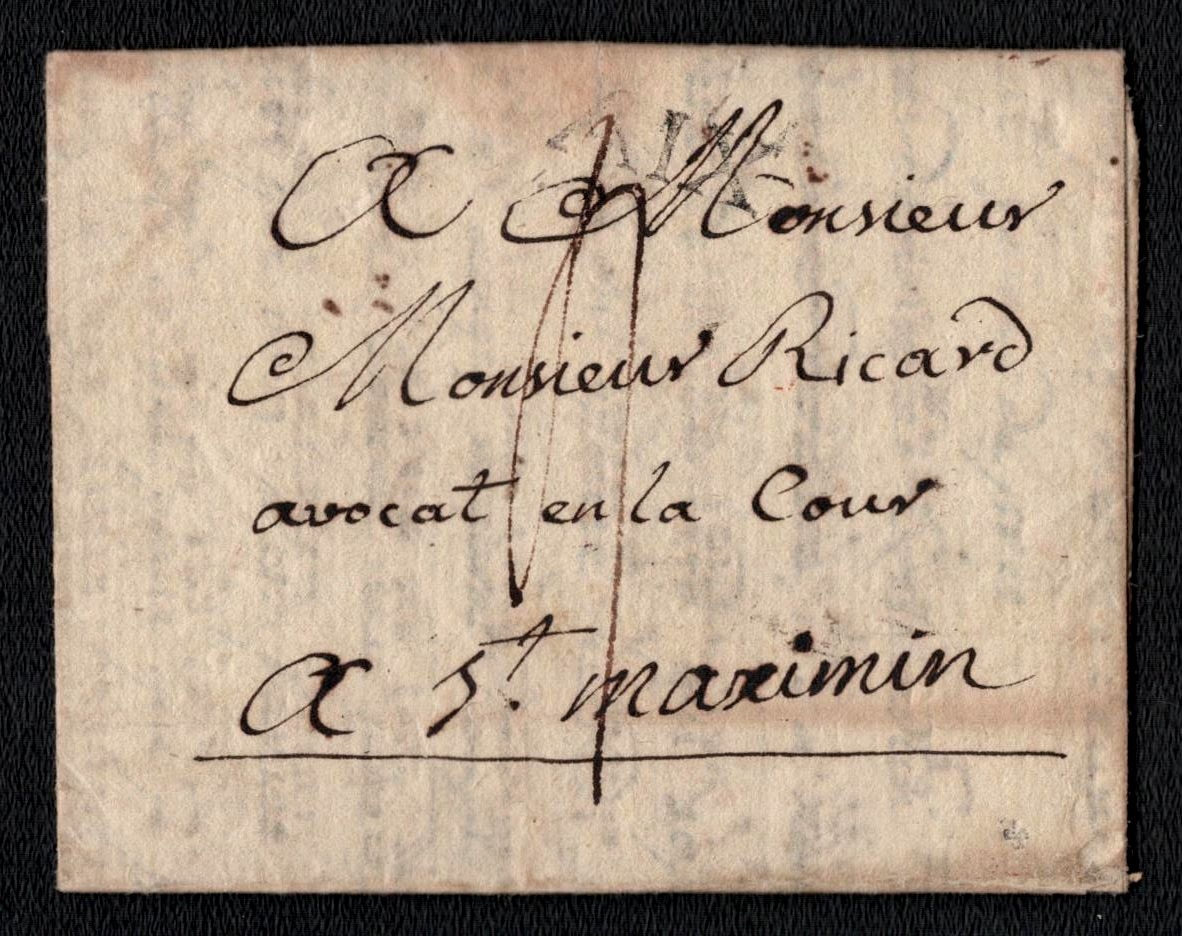 AIX
A Monsieur
Monsieur Ricard
avocat en la Cour
A St. maximin